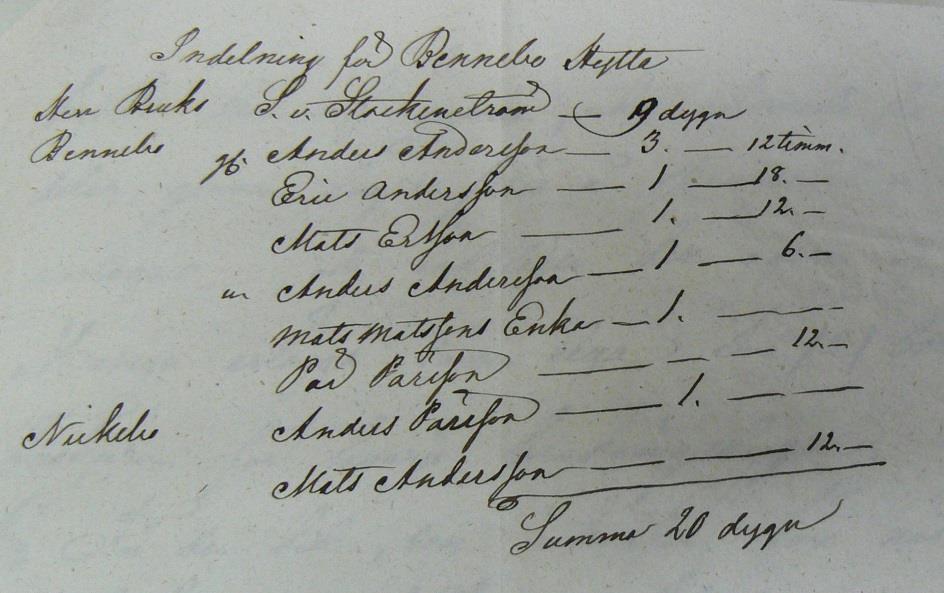 Indelning för Bennebo Hytta
Herr Bruks S. v. Stockenström — 9 dygn
Bennebo gb. Anders Andersson — 3. — 12 timm.
Eric Andersson — 1 — 18. —
Mats Ersson — 1. — 12. —
un Anders Andersson — 1 — 6. —
Mats Matssons Enka — 1. — —
Pär Pärsson — — — 12. —
Nickebo Anders Pärsson — 1. — —
Mats Andersson — — — 12. —
Summa 20 dygn